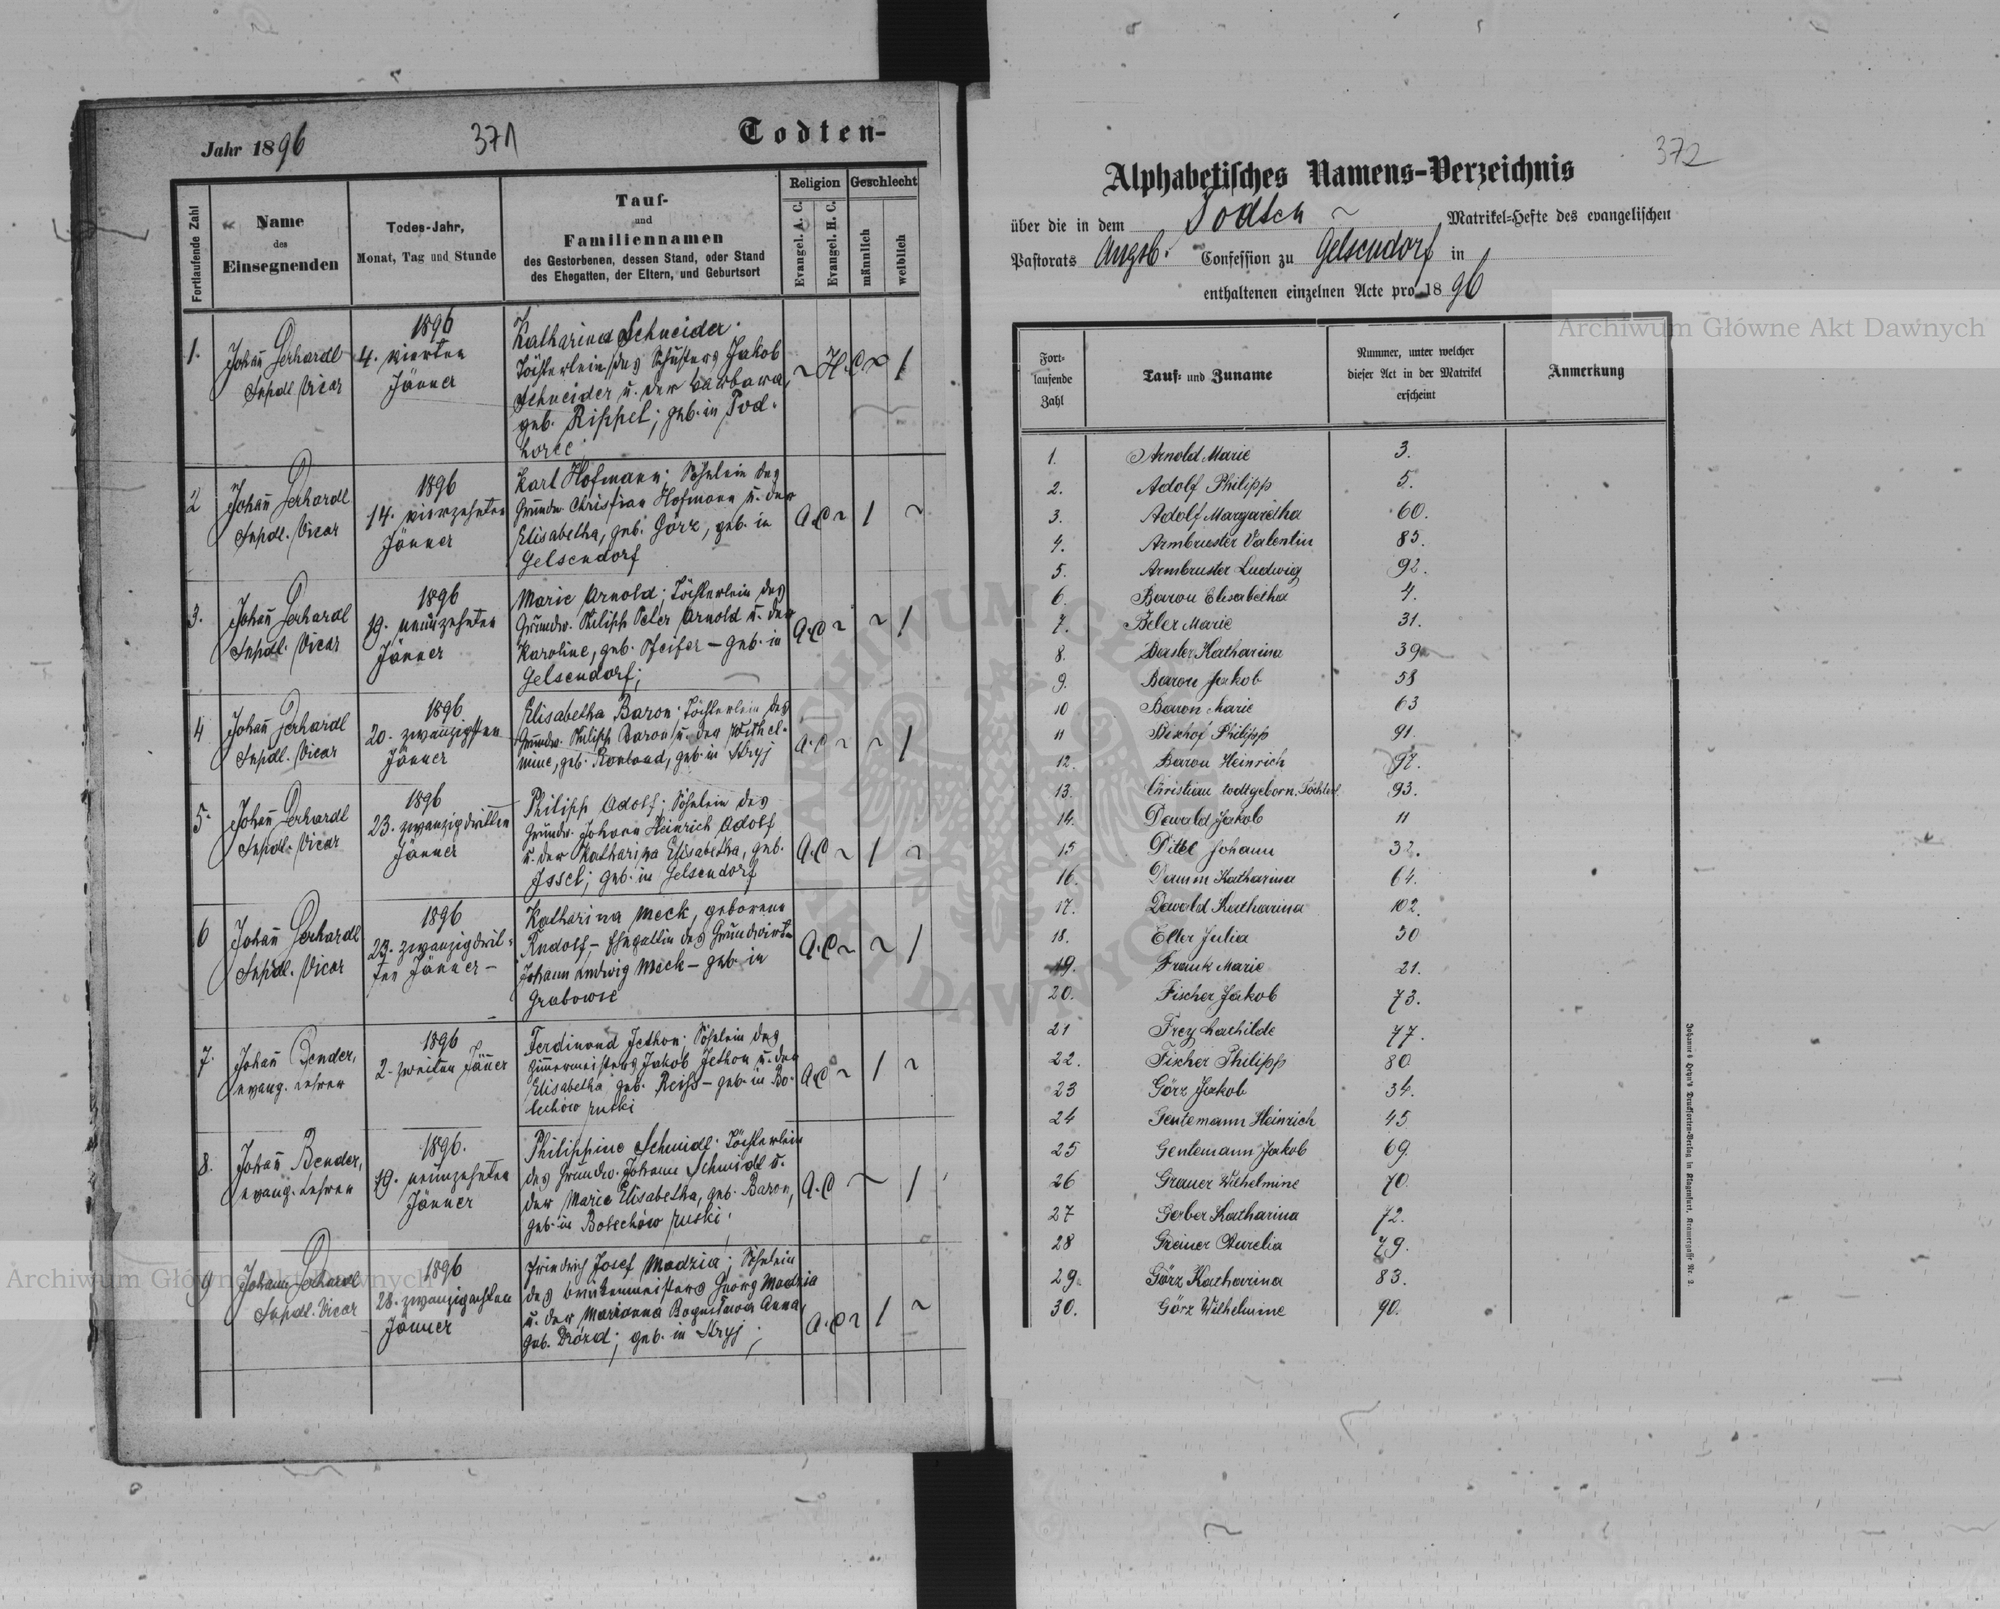 Jahr 1896
371
Todten-
Fortlaufende Zahl
Name
des
Einsegnenden
Todes-Jahr,
Monat, Tag und Stunde
Tauf-
und
Familiennamen
des Gestorbenen, dessen Stand, oder Stand
des Ehegatten, der Eltern, und Geburtsort
Religion
Evangel. A. C.
Evangel. H. C.
Geschlecht
männlich
weiblich
1.
Johañ Gerhardt
Supdl. Vicar
1896
4. vierten
Jänner
Katharina Schneider.
Töchterlein des Schusters Jakob
Schneider u. der Barbara,
geb. Rippel; geb. in Pod-
horce
~ H.C ~ 1
2
Johañ Gerhardt
Supdl. Vicar
1896
14. vierzehnten
Jänner
Karl Hofmann; Söhnlein des
Grundw. Christian Hofmann u. der
Elisabetha, geb. Görz, geb. in
Gelsendorf
A.C ~ 1 ~
3.
Johañ Gerhardt
Supdl. Vicar
1896
19. neunzehnten
Jänner
Marie Arnold; Töchterlein des
Grundw. Philipp Peter Arnold u. der
Karoline, geb. Pfeifer - geb. in
Gelsendorf;
A.C ~ ~ 1
4
Johañ Gerhardt
Supdl. Vicar
1896
20. zwanzigsten
Jänner
Elisabetha Baron; Töchterlein des
Grundw. Philipp Baron u. der Wilhel-
mine, geb. geb. in Stryj
A.C ~ ~ 1
5.
Johañ Gerhardt
Supdl. Vicar
1896
23. zwanzigdritten
Jänner
Philipp Adolf; Söhnlein des
Grundw. Johann Heinrich Adolf
u. der Katharina Elisabetha, geb.
Issel; geb. in Gelsendorf
A.C ~ 1 ~
6
Johañ Gerhardt
Supdl. Vicar
1896
23. zwanzigdrit-
ten Jänner -
Katharina Meck, geborene
Rudolf - Ehegattin des Grundwirten
Johann Ludwig Meck - geb. in
Grabowse
A.C ~ ~ 1
7.
Johañ Bender,
evang. Lehrer
1896
2. zweiten Jäner
Ferdinand Jethon; Söhnlein des
Zimmermeisters Jakob Jethon u. der
Elisabetha geb. Reiss - geb. in Bo-
lechów ruski
A.C ~ 1 ~
8.
Johañ Bender,
evang. Lehrer
1896.
19. neunzehnten
Jänner
Philippine Schmidt; Töchterlein
des Grundw. Johann Schmidt u.
der Marie Elisabetha, geb. Baron,
geb. in Bolechów ruski.
A.C ~ 1
9
Johann Gerhardt
Supdl. Vicar
1896
28. zwanzigachten
Jänner
Friedrich Josef Madzia; Söhnlein
des Brückenmeisters Georg Madzia
u. der Marianna Anna,
geb. Drózd; geb. in Stryj;
A.C ~ 1 ~
372
Alphabetisches Namens-Verzeichnis
über die in dem Todten ~ Matrikel-Hefte des evangelischen
Pastorats Augsb. Confession zu Gelsendorf in
enthaltenen einzelnen Acte pro 1896
Fort-
laufende
Zahl
Tauf- und Zuname
Nummer, unter welcher
dieser Act in der Matrikel
erscheint
Anmerkung
1. Arnold Marie 3.
2. Adolf Philipp 5.
3. Adolf Margaretha 60.
4. Armbruster Valentin 85.
5. Armbruster Ludwig 92.
6. Baron Elisabetha 4.
7. Beler Marie 31.
8. Basler Katharina 39
9. Baron Jakob 58
10 Baron Marie 63
11 Bischof Philipp 91.
12. Baron Heinrich 97.
13. Christian todtgeborn. Töchterl. 93.
14. Dewald Jakob 11
15 Dittel Johann 32.
16. Damm Katharina 64.
17. Dewald Katharina 102.
18. Eller Julia 30
19. Frank Marie 21.
20. Fischer Jakob 73.
21 Frey Mathilde 77.
22. Fischer Philipp 80
23 Görz Jakob 34.
24 Gentemann Heinrich 45
25 Gentemann Jakob 69.
26 Grauer Wilhelmine 70.
27 Gerber Katharina 72.
28 Greiner Aurelia 79.
29. Görz Katharina 83.
30. Görz Wilhelmine 90.
Johannes Heyn's Drucksorten-Verlag in Klagenfurt, Kramergasse Nr. 2.
Archiwum Główne Akt Dawnych
Archiwum Główne Akt Dawnych
ARCHIWUM GŁÓWNE AKT DAWNYCH